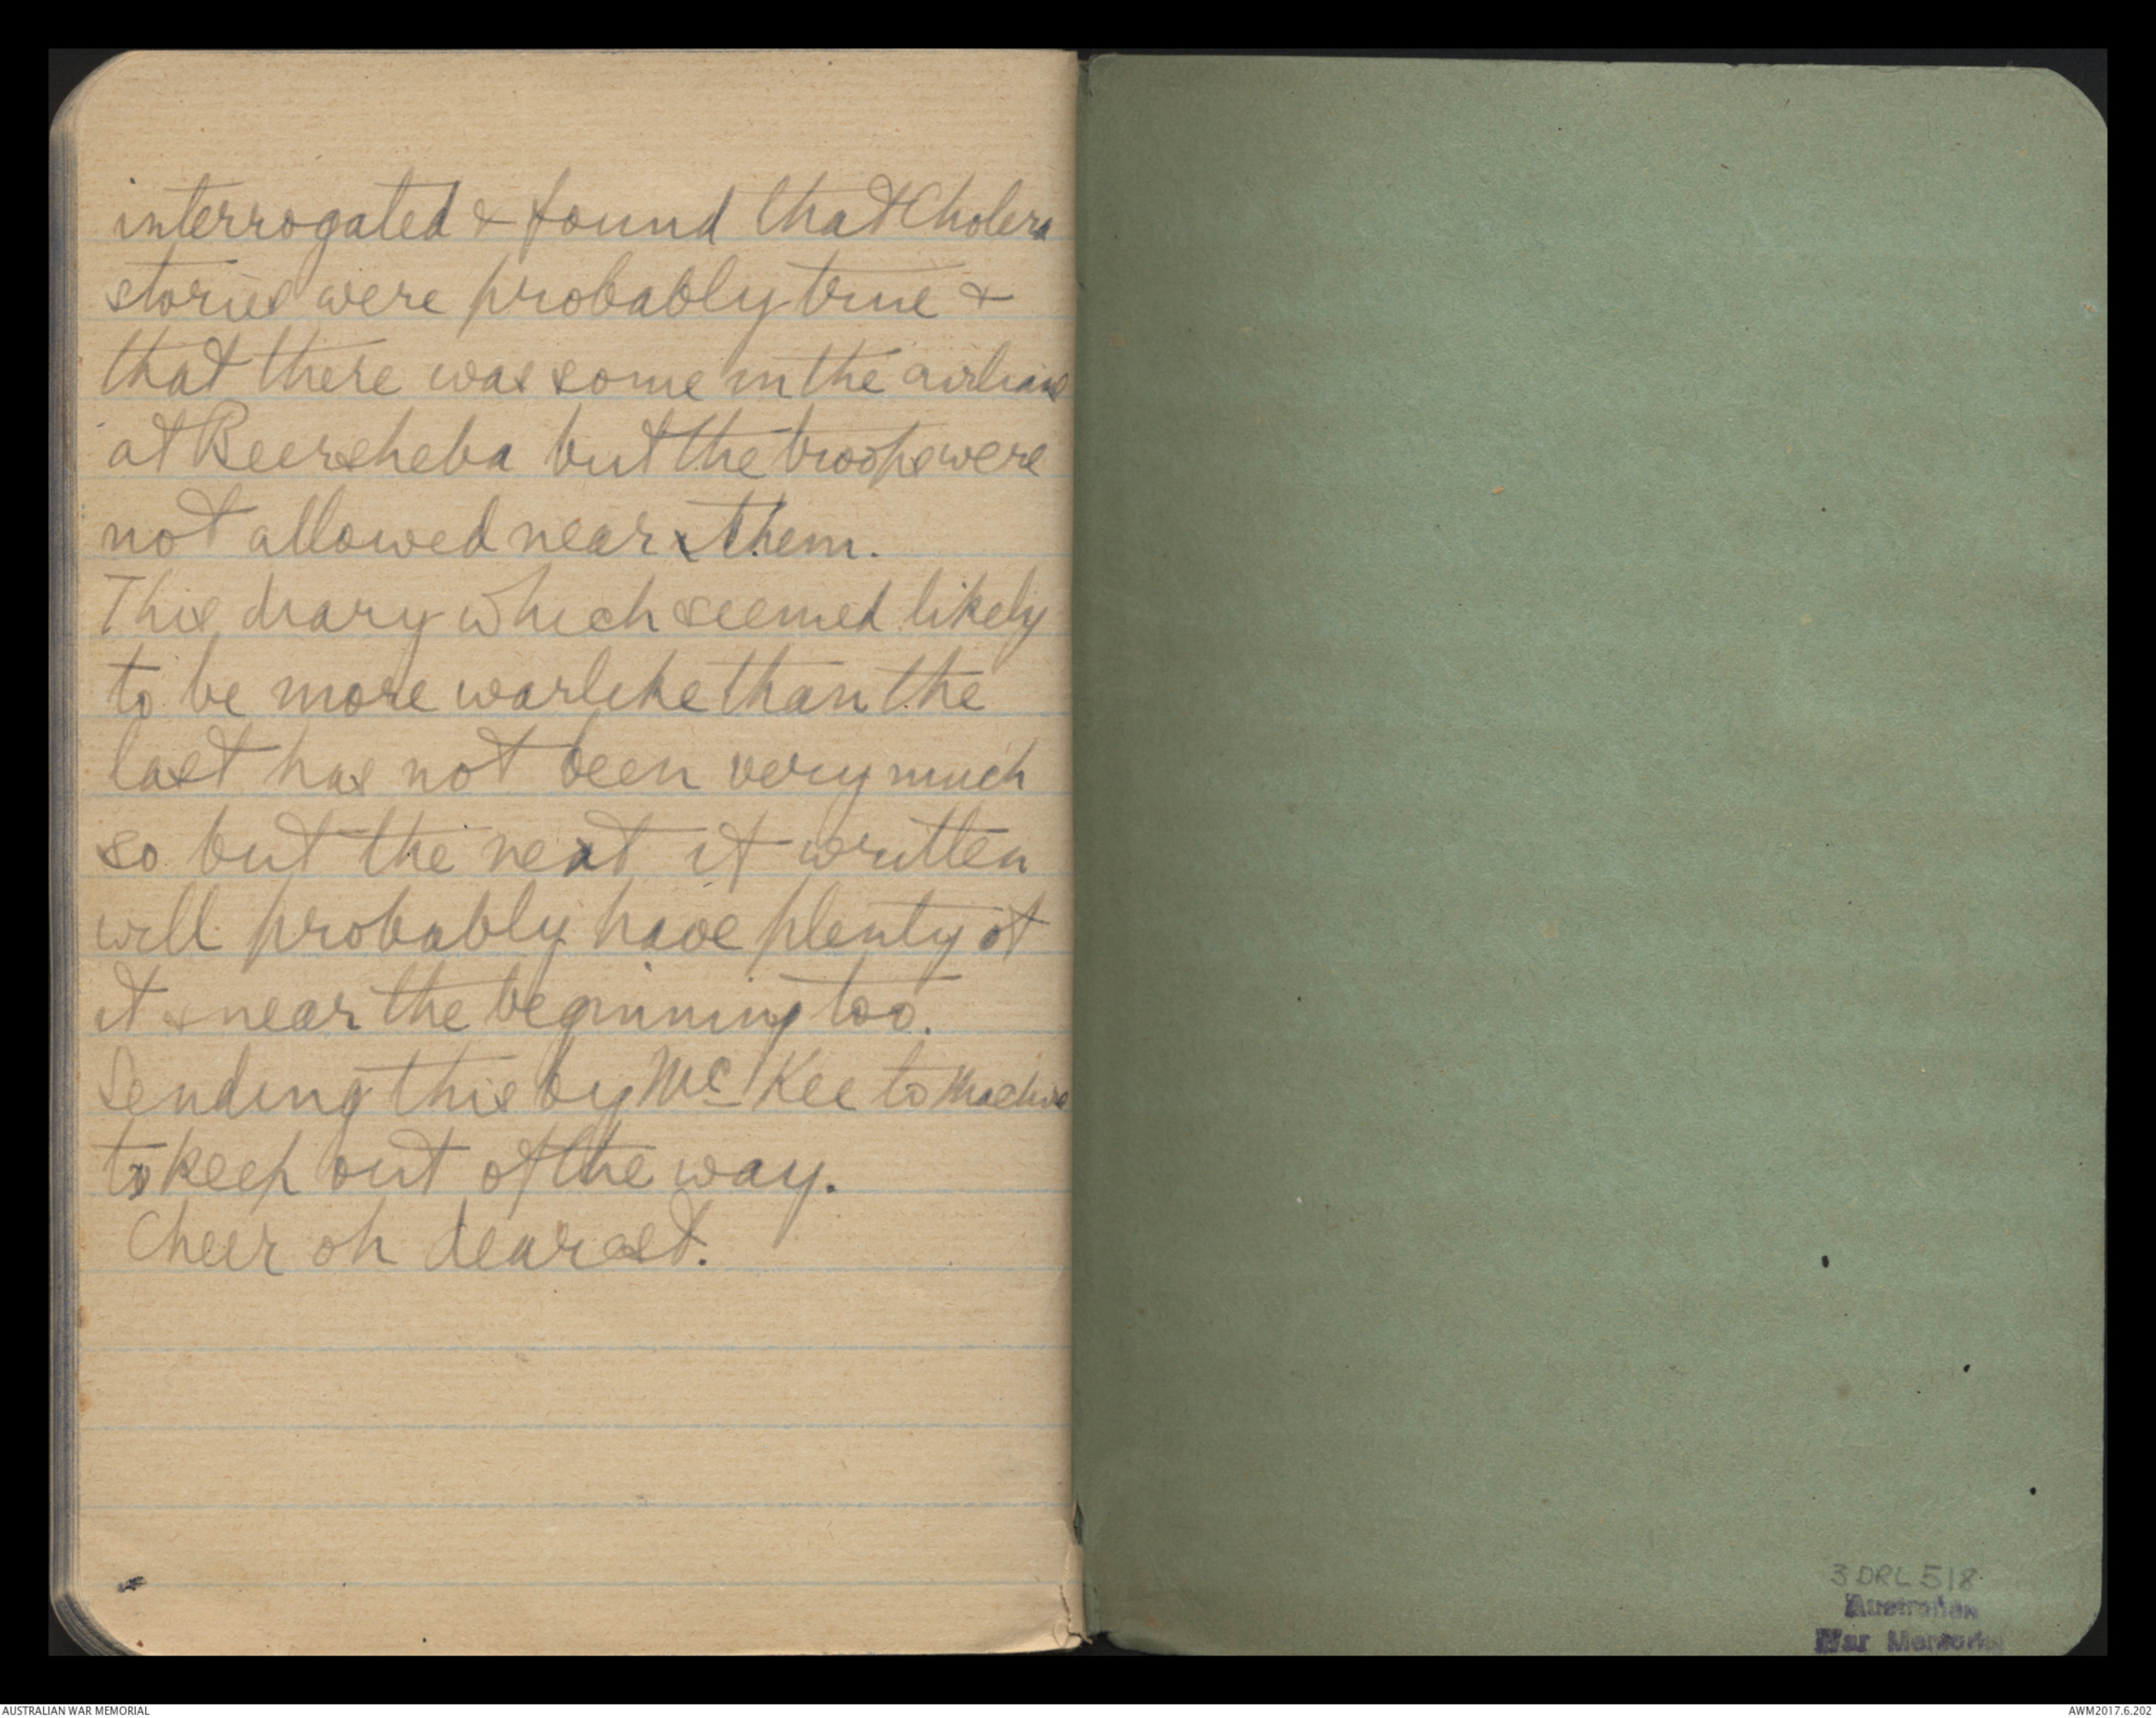 interrogated & found that Cholera
stories were probably true &
that there was some in the
at Beersheba but the troops were
not allowed near them.
This diary which seemed likely
to be more warlike than the
last has not been very much
so but the next if written
will probably have plenty of
it & near the beginning too.
Sending this by McKee to
to keep out of the way.
Cheer oh dearest.
3 DRL 518
Australian
War Memorial
AUSTRALIAN WAR MEMORIAL
AWM2017.6.202